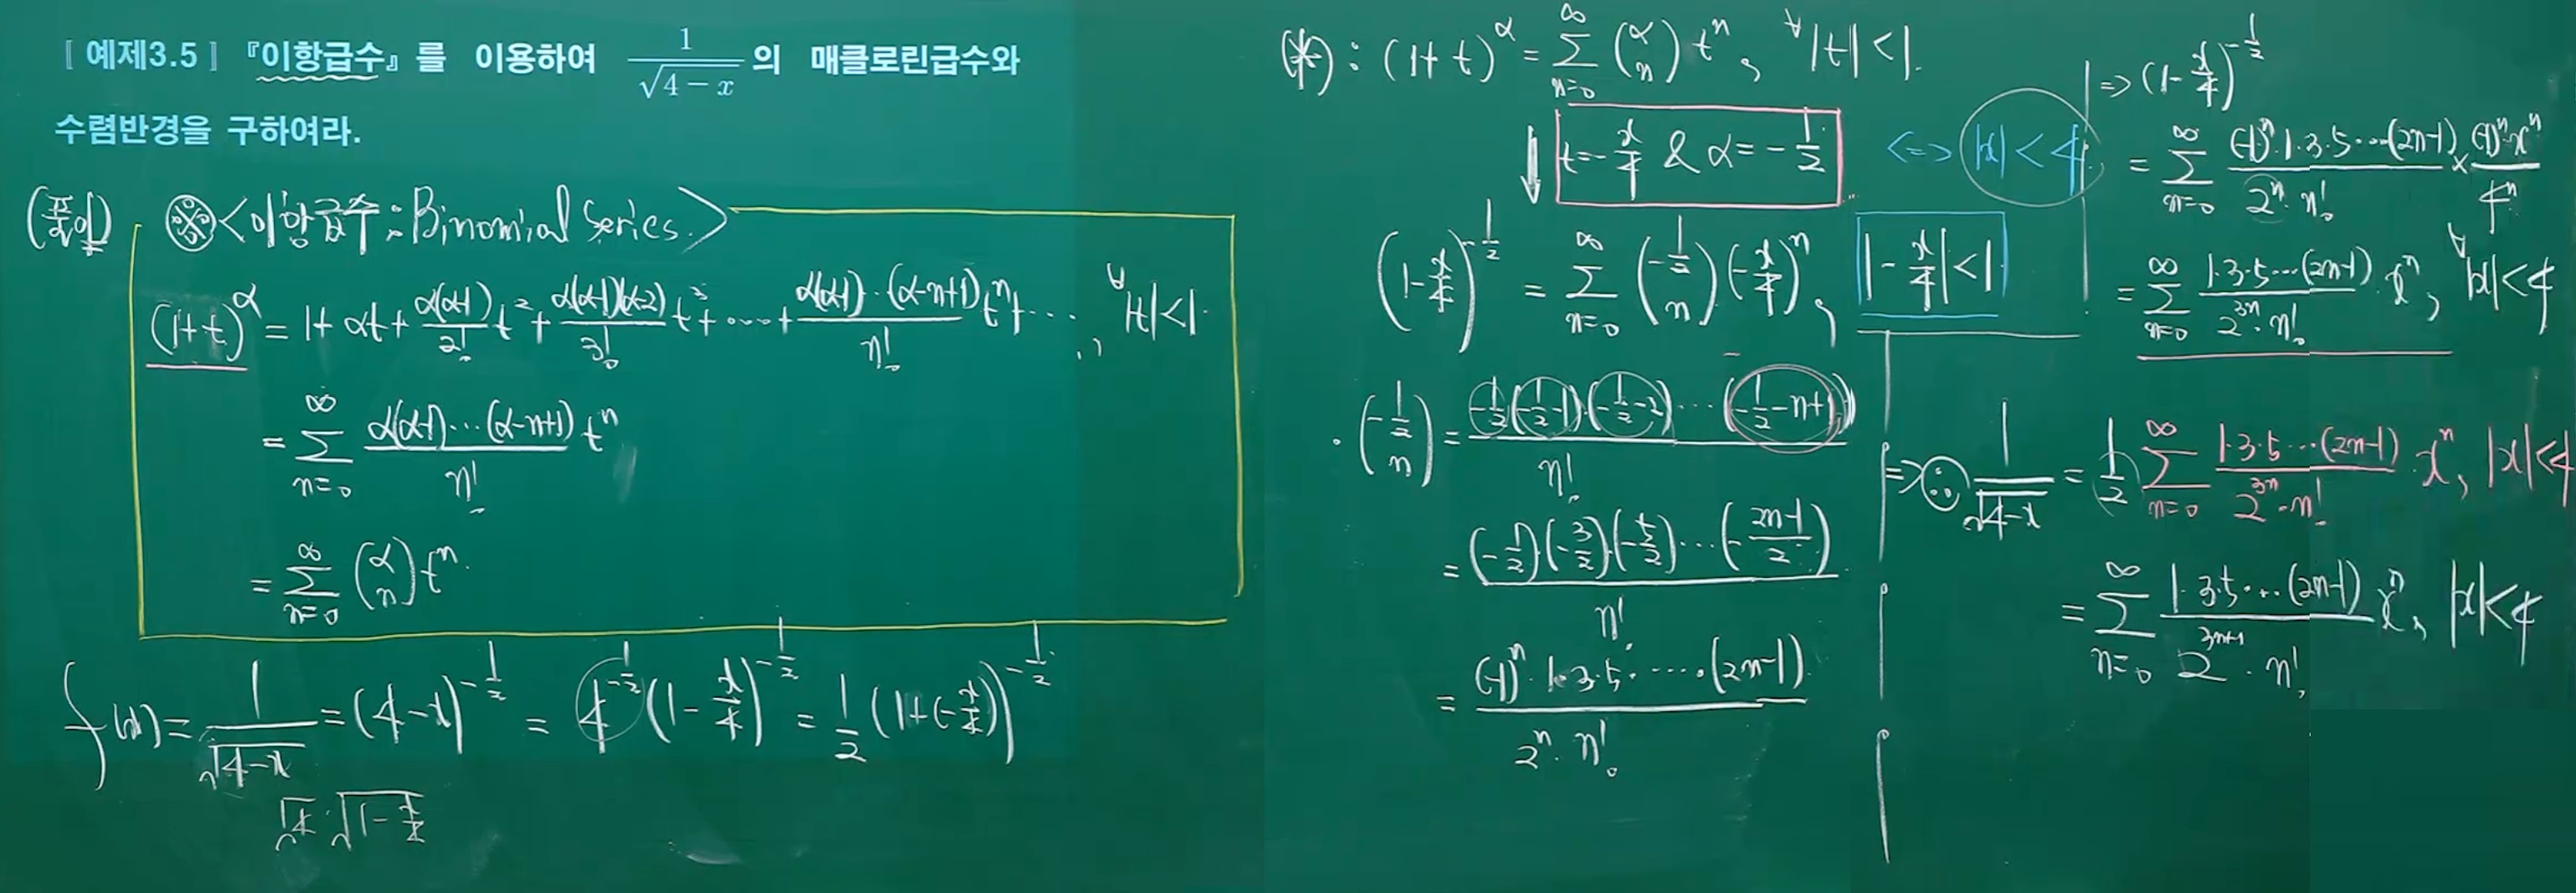 [예제3.5] 『이항급수』를 이용하여 $\frac{1}{\sqrt{4-x}}$의 매클로린급수와
수렴반경을 구하여라.
(풀이) ※ <이항급수: Binomial Series.>
$(1+t)^{\alpha} = 1+\alpha t+\frac{\alpha(\alpha-1)}{2!}t^2+\frac{\alpha(\alpha-1)(\alpha-2)}{3!}t^3+\cdots+\frac{\alpha(\alpha-1)\cdots(\alpha-n+1)}{n!}t^n+\cdots, \ ^{\forall}|t|<1.$
$= \sum_{n=0}^{\infty} \frac{\alpha(\alpha-1)\cdots(\alpha-n+1)}{n!} t^n$
$= \sum_{n=0}^{\infty} \binom{\alpha}{n} t^n.$
$f(x) = \frac{1}{\sqrt{4-x}} = (4-x)^{-\frac{1}{2}} = 4^{-\frac{1}{2}}\left(1-\frac{x}{4}\right)^{-\frac{1}{2}} = \frac{1}{2}\left(1+\left(-\frac{x}{4}\right)\right)^{-\frac{1}{2}}$
$\sqrt{4}\cdot\sqrt{1-\frac{x}{4}}$
$(*) : (1+t)^{\alpha} = \sum_{n=0}^{\infty} \binom{\alpha}{n} t^n, \ ^{\forall}|t|<1.$
$\downarrow \ t=-\frac{x}{4} \ \& \ \alpha=-\frac{1}{2}$
$\left(1-\frac{x}{4}\right)^{-\frac{1}{2}} = \sum_{n=0}^{\infty} \binom{-\frac{1}{2}}{n}\left(-\frac{x}{4}\right)^n, \ \left|-\frac{x}{4}\right|<1$
$\Leftrightarrow |x|<4$
$\cdot \binom{-\frac{1}{2}}{n} = \frac{-\frac{1}{2}\left(-\frac{1}{2}-1\right)\left(-\frac{1}{2}-2\right)\cdots\left(-\frac{1}{2}-n+1\right)}{n!}$
$= \frac{\left(-\frac{1}{2}\right)\cdot\left(-\frac{3}{2}\right)\cdot\left(-\frac{5}{2}\right)\cdots\left(-\frac{2n-1}{2}\right)}{n!}$
$= \frac{(-1)^n\cdot 1\cdot 3\cdot 5\cdot\cdots\cdot(2n-1)}{2^n\cdot n!}$
$\Rightarrow \left(1-\frac{x}{4}\right)^{-\frac{1}{2}}$
$= \sum_{n=0}^{\infty} \frac{(-1)^n\cdot 1\cdot 3\cdot 5\cdots(2n-1)}{2^n\cdot n!} \times \frac{(-1)^n\cdot x^n}{4^n}$
$= \sum_{n=0}^{\infty} \frac{1\cdot 3\cdot 5\cdots(2n-1)}{2^{3n}\cdot n!}\cdot x^n, \ ^{\forall}|x|<4$
$\Rightarrow \therefore \frac{1}{\sqrt{4-x}} = \frac{1}{2}\sum_{n=0}^{\infty} \frac{1\cdot 3\cdot 5\cdots(2n-1)}{2^{3n}\cdot n!}\cdot x^n, \ |x|<4$
$= \sum_{n=0}^{\infty} \frac{1\cdot 3\cdot 5\cdots(2n-1)}{2^{3n+1}\cdot n!} x^n, \ |x|<4$